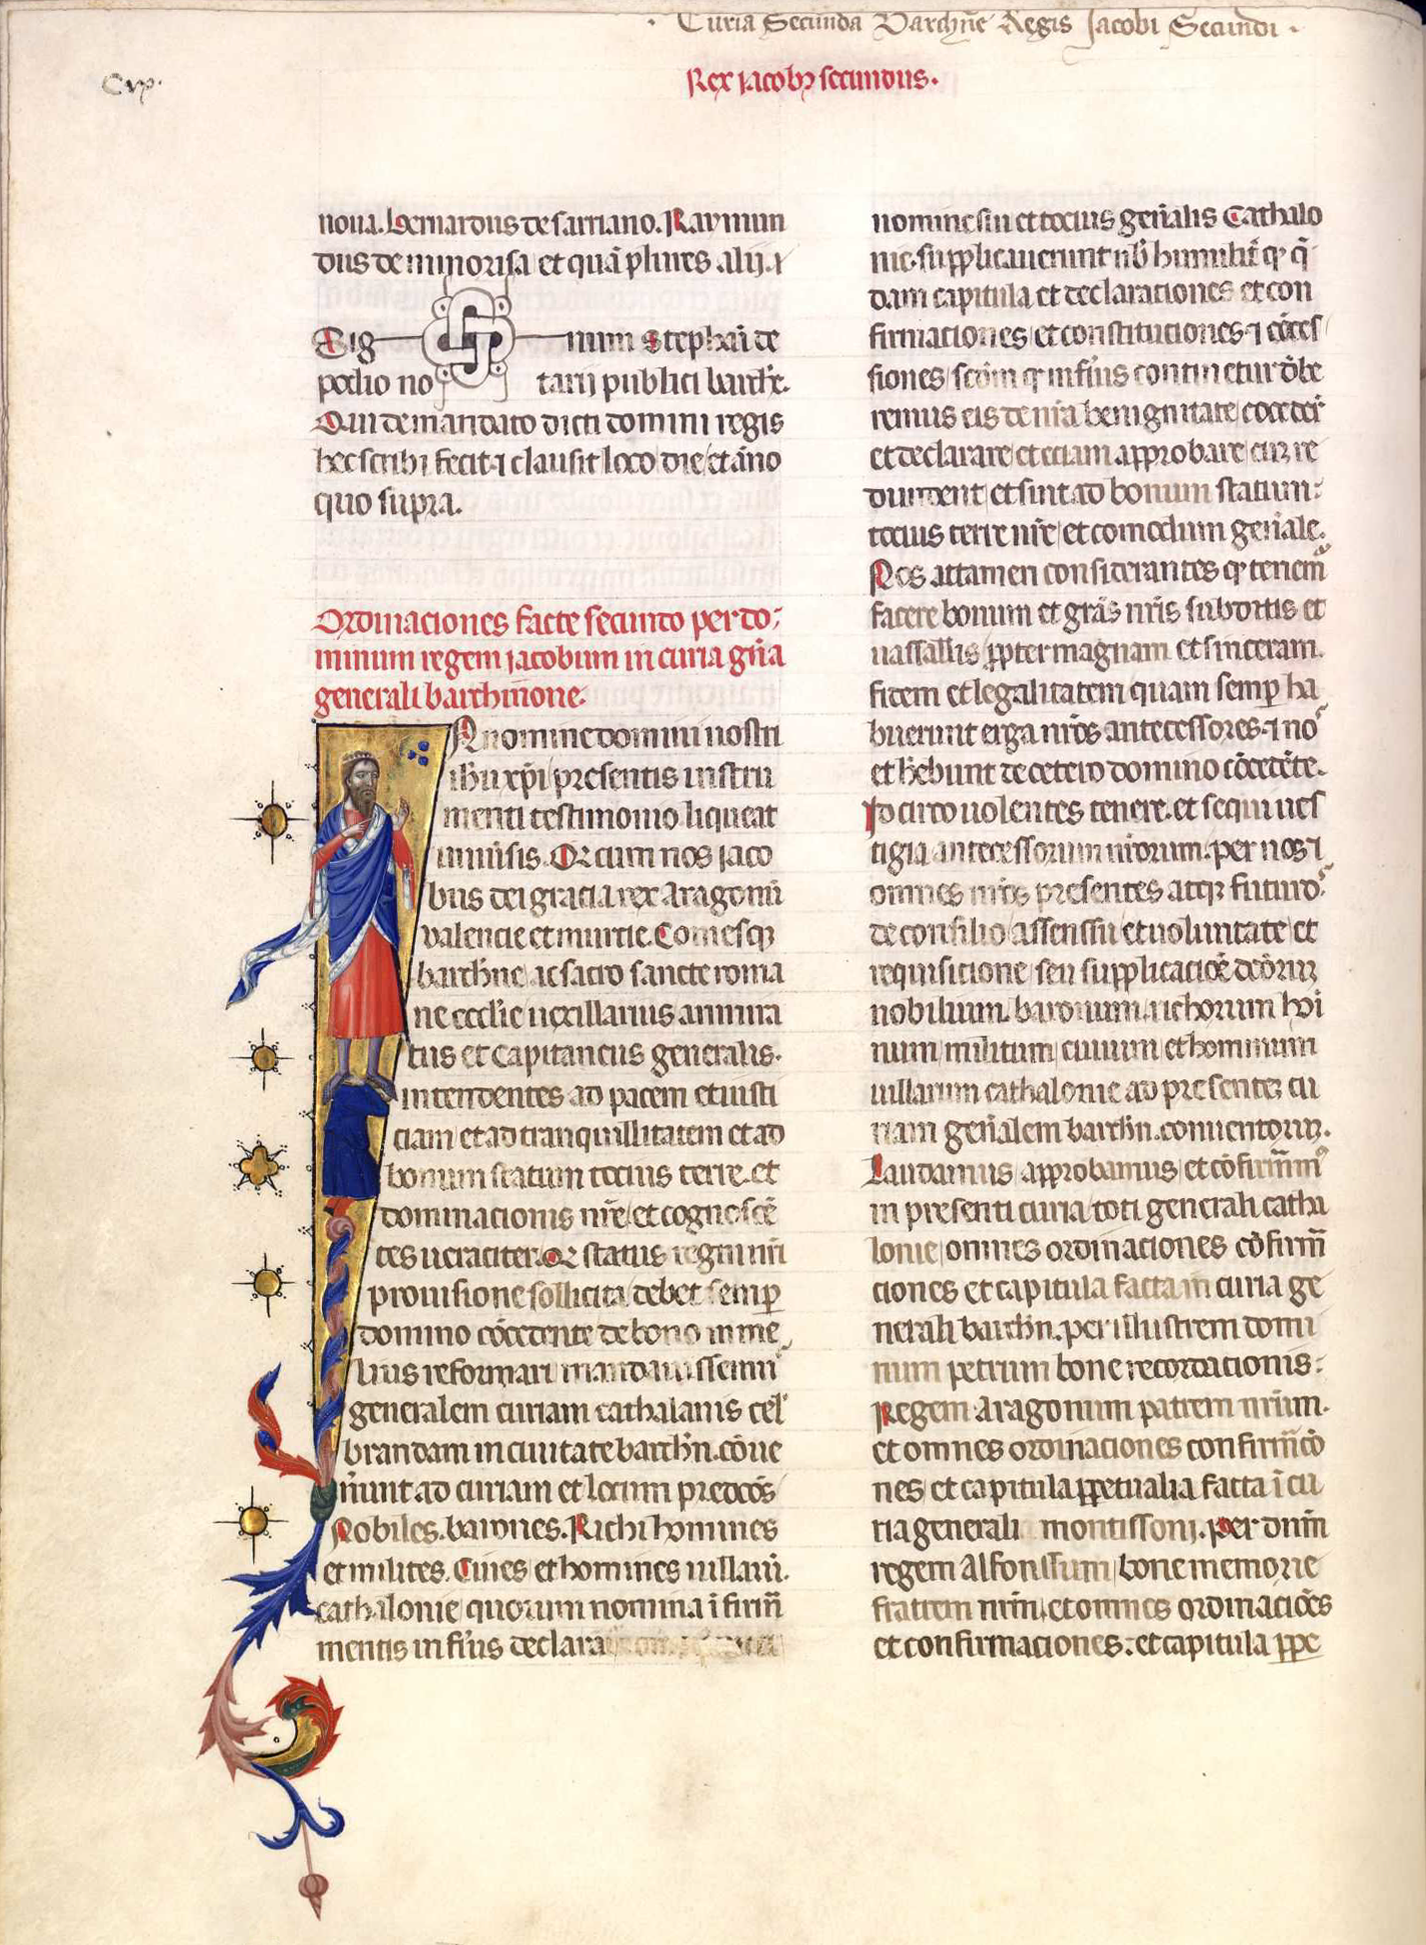 · Curia Secunda Barchn̄e Regis Jacobi Secundi ·
Cvx·
Rex iacobꝫ secundus·
noua. bernardus de sarriano. Raymun
dus de minorisa et quā plures alij. ⁊
Sig num Stephāi de
podio no tarij publici barch̄e.
Qui de mandato dicti domini regis
hec scribi fecit ⁊ clausit loco die et āno
quo supra.
Ordinaciones facte secundo per do;
minum regem iacobum in curia gn̄a
generali barchinone.
In nomine domini nostri
ihu xp̄i presentis instru
menti testimonio liqueat
uniūsis. Qꝫ cum nos iaco
bus dei gracia rex Aragonū
valencie et murcie. Comesqꝫ
barchn̄e ac sacro sancte roma
ne eccl̄ie uexillarius ammira
tus et Capitaneus generalis.
intendentes ad pacem et iusti
ciam et ad tranquillitatem et ad
bonum statum tocius terre. et
dominacionis nr̄e et cognoscē
tes ueraciter. Qꝫ status regni nr̄i
prouisione sollicita debet semꝑ
domino cōcedente de bono in me
lius reformari mandauissemꝰ
generalem curiam cathalanis cel̄
brandam in ciuitate barchn̄. cōue
n̄unt ad curiam et locum predc̄os
Nobiles. barones. Richi homines
et milites. Ciues et homines uillarū.
cathalonie quorum nomina ī firm̄
mentis inf̄ius declara
nomine siu et tocius gen̄alis Cathalo
nie. supplicauerunt nb̄ humilit̄ qꝫ q̄
dam capitula et declaraciones et con
firmaciones et constituciones ⁊ cōces
siones scd̄m qꝫ inf̄ius continetur dēbe
remus eis de nr̄a benignitate cōcedē
et declarare et eciam approbare cū re
dundent et sint ad bonum statum:
tocius terre nr̄e et comodum gen̄ale.
Nos attamen considerantes qꝫ tenemꝰ
facere bonum et grās nr̄is subditis et
uassallis ꝓpter magnam et sinceram.
fidem et legalitatem quam semꝑ ha
buerunt erga nr̄os antecessores. ⁊ nos
et hēbunt de cetero domino cōcedēte.
Idcirco uolentes tenere. et sequi ues
tigia antecessorum nr̄orum. per nos ⁊
omnes nr̄os presentes atqꝫ futuros
de consilio assenssu et uoluntate et
requisicione seu supplicaciōe dc̄orū
nobilium. baronum. richorum hoī
num militum ciuium et hominum
uillarum cathalonie ad presentē cu
riam gen̄alem barchn̄. conuentorū.
Laudamus approbamus et cōfirmamꝰ
in presenti curia toti generali catha
lonie omnes ordinaciones cōfirm̄
ciones et capitula facta in curia ge
nerali barchn̄. per illustrem domi
num petrum bone recordacionis:
Regem Aragonum patrem nr̄um.
et omnes ordinaciones confirm̄cō
nes et capitula ꝑpetualia facta ī cu
ria generali montissoni. per dn̄m
regem Alfonssum bone memorie
fratrem nr̄m. et omnes ordinaciōes
et confirmaciones: et capitula ꝑpe